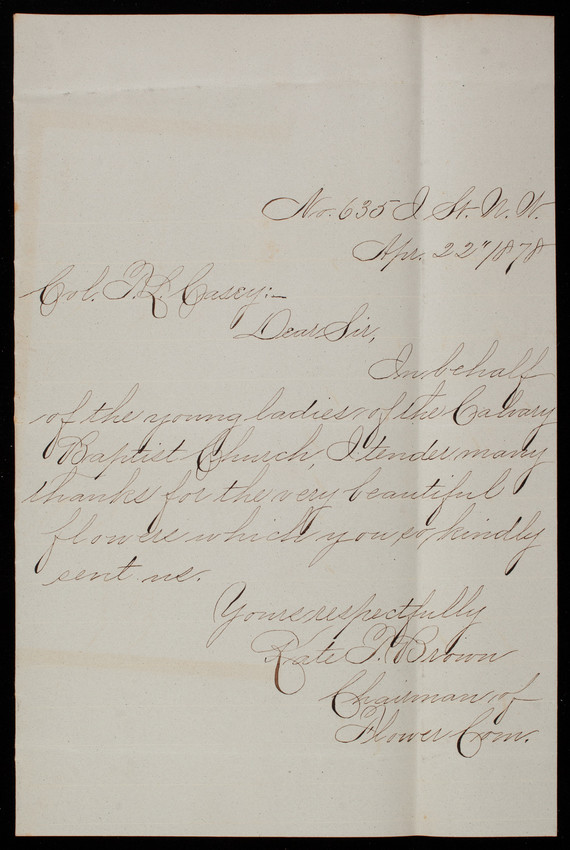 No. 635 I St. N. W.
Apr. 22" 1878
Col. T. L. Casey:-
Dear Sir,
In behalf
of the young ladies of the Calvary
Baptist Church, I tender many
thanks for the very beautiful
flowers which you so kindly
sent us.
Yours respectfully
Kate T. Brown
Chairman of
Flower Com.